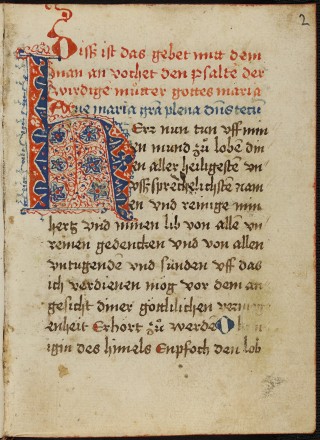 2
Diss ist das gebet mitt dem
man an vochet den psalter der
wirdige mutter gottes maria
Aue maria gra plena dns tecu
HErz nun tun vff min
en mund zu lobe din
en aller heiligesten vn
vssprechelichste nam
en vnd reinige min
hertz vnd minen lib von allen vn
reinen gedencken vnd von allen
vntugende vnd sunden vff das
ich verdienen mog vor dem an
gesicht diner gottlilichen
enheit Erhort zu werde O
igin des himels Enpfoch den lob